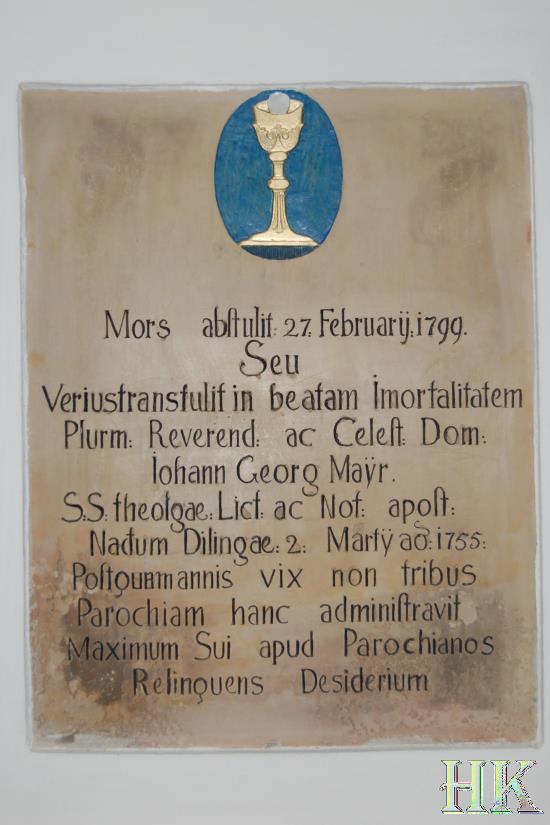 Mors abſtulit: 27. Februarÿ: 1799.
Seu
Veriustranstulit in beatam Imortalitatem
Plurm: Reverend: ac Celeſt: Dom:
Iohann Georg Maÿr.
S.S. theolgae: Lict: ac Not: apoſt:
Nactum Dilingae: 2: Martÿ ao: 1755:
Poſtquamannis vix non tribus
Parochiam hanc adminiſtravit
Maximum Sui apud Parochianos
Relinquens Desiderium
HK